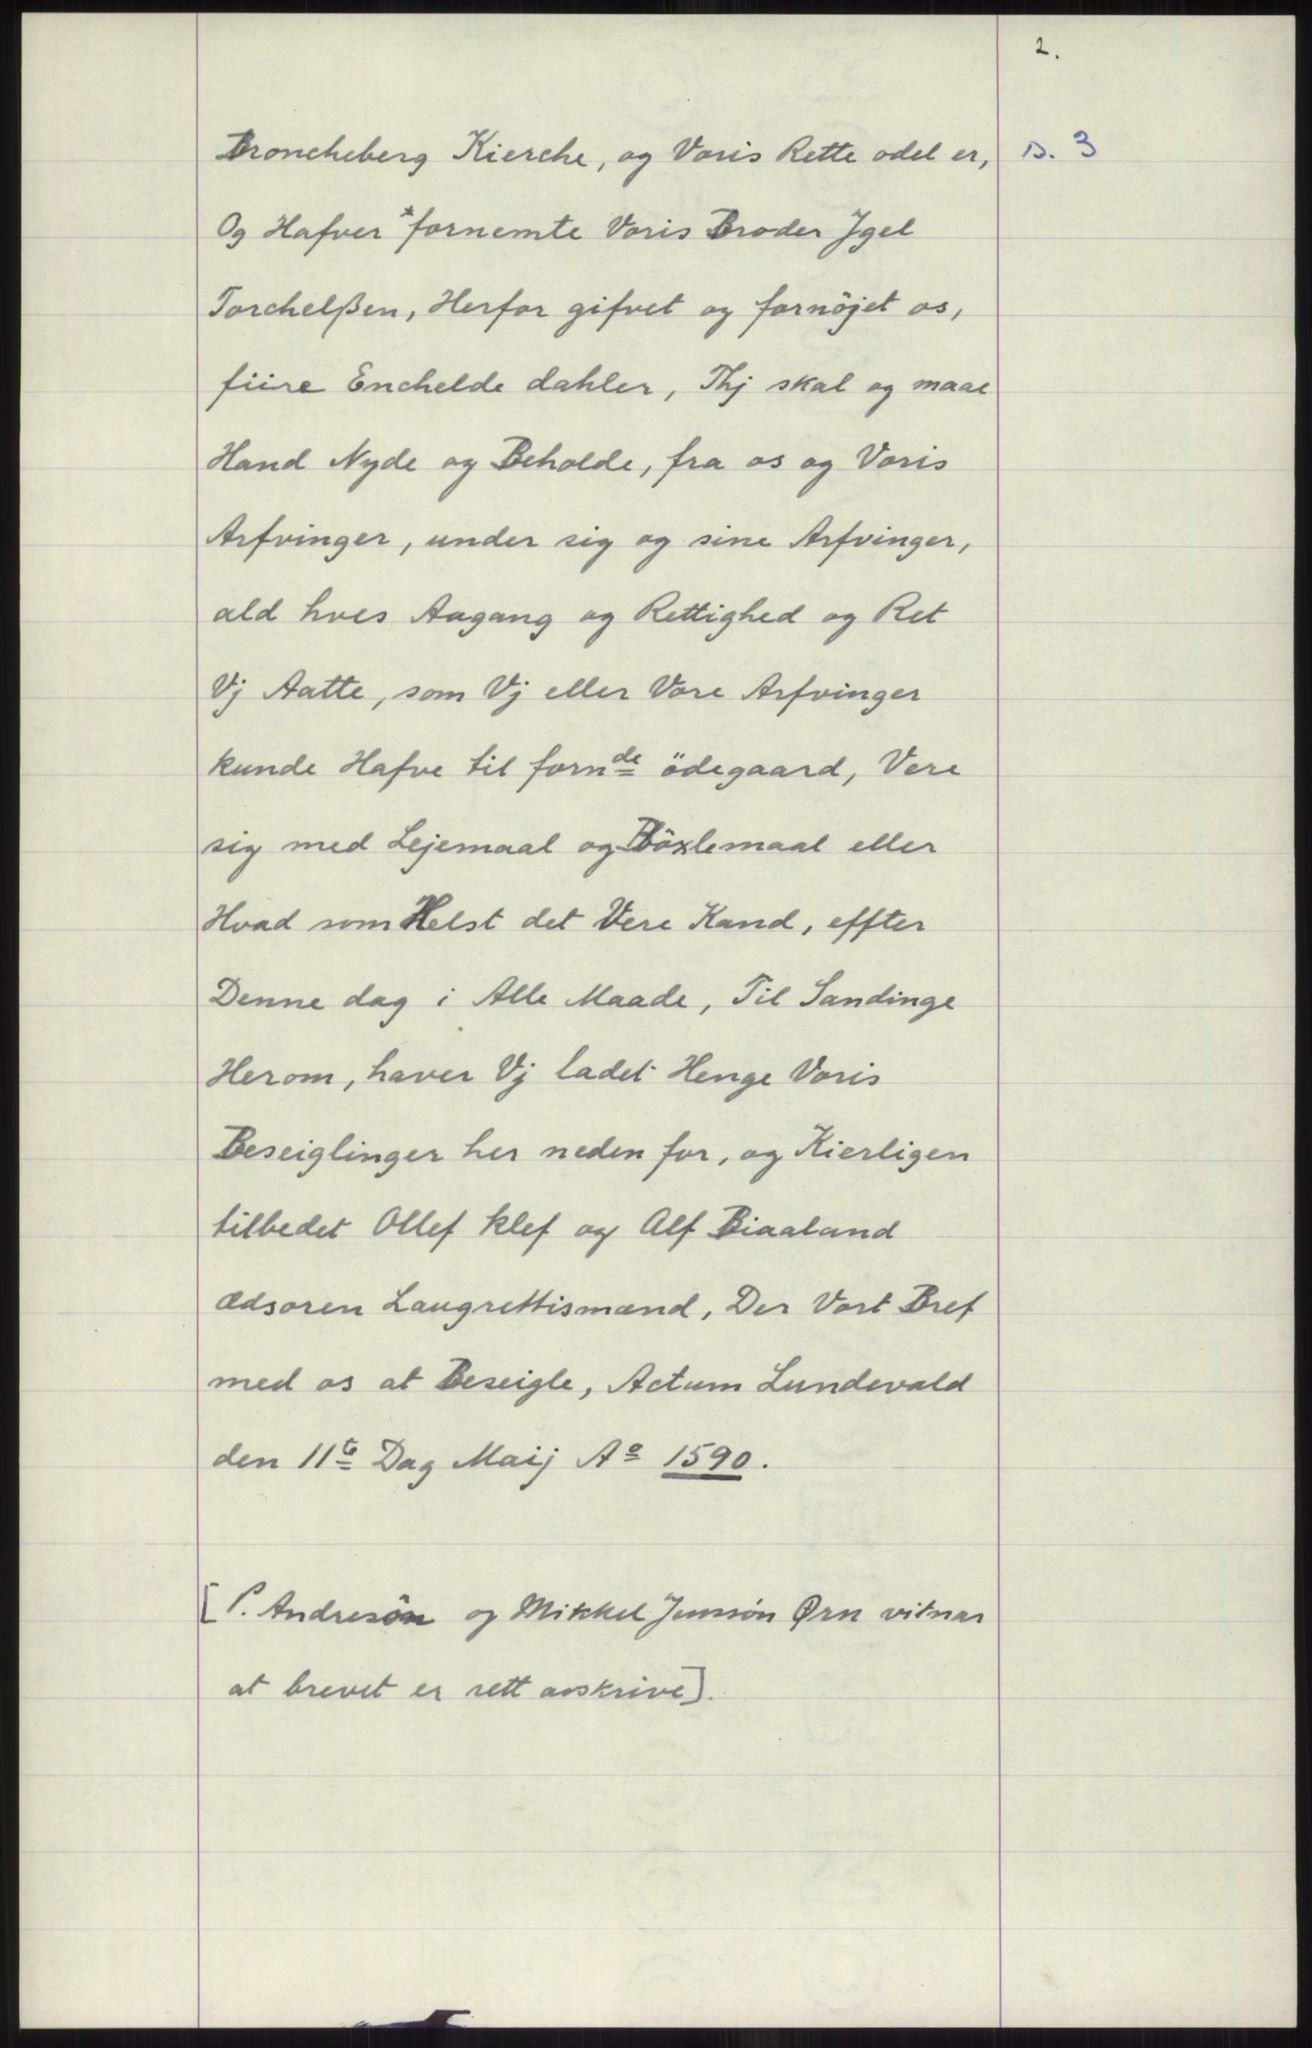 2.
Broncheberg Kierche, og Voris Rette odel er,
s. 3
Og Hafver *fornemte Voris Broder Jgel
Torchelßen, Herfor gifvet og fornöjet os,
fiire Enchelde dahler, Thj skal og maae
Hand Nyde og Beholde, fra os og Voris
Arfvinger, under sig og sine Arfvinger,
ald hves Aagang og Rettighed og Ret
Vj Aatte, som Vj eller Vore Arfvinger
kunde Hafve til fornde ödegaard, Vere
sig med Lejemaal og Böxlemaal eller
Hvad som Helst det Vere Kand, effter
Denne dag i Alle Maade, Til Sandinge
Herom, haver Vj ladet Henge Voris
Beseiglinger her neden for, og Kierligen
tilbedet Ollef klef og Alf Biaaland
Ædsoren Laugrettismænd, Der Vort Bref
med os at Beseigle, Actum Lundevald
den 11te Dag Maij Ao 1590.
[P. Andresön og Mikkel Jenssön Ørn vitnar
at brevet er rett avskrive].